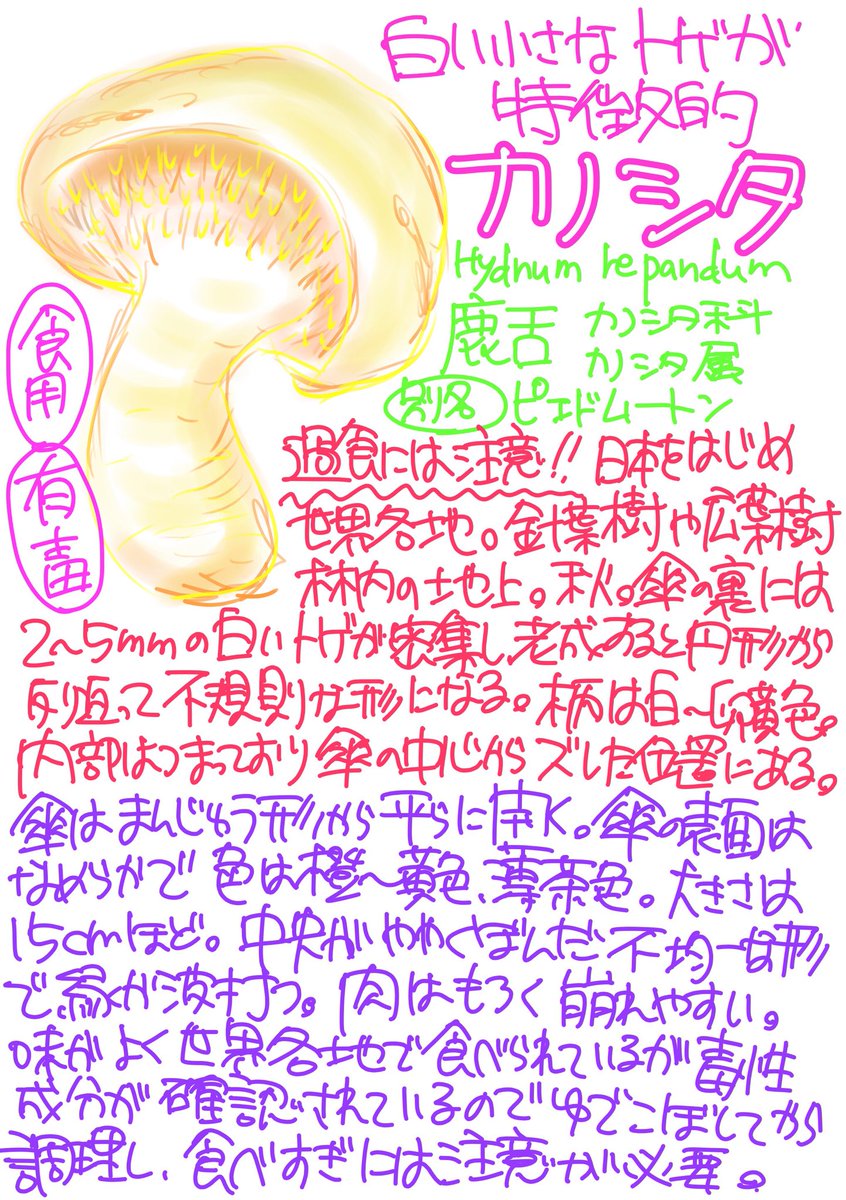 白い小さなトゲが
特徴的
カノシタ
Hydnum repandum
鹿舌 カノシタ科
カノシタ属
別名 ピエドムートン
食用
有毒
過食には注意!! 日本をはじめ
世界各地。針葉樹や広葉樹
林内の地上。秋。傘の裏には
2〜5mmの白いトゲが密集し、老成すると円形から
反り返って不規則な形になる。柄は白〜淡黄色。
内部はつまっており傘の中心からズレた位置にある。
傘はまんじゅう形から平らに開く。傘の表面は
なめらかで色は橙〜黄色、薄茶色。大きさは
15cmほど。中央がややくぼんだ不均一な形
で、縁が波打つ。肉はもろく崩れやすい。
味がよく世界各地で食べられているが毒性
成分が確認されているのでゆでこぼしてから
調理し、食べすぎには注意が必要。